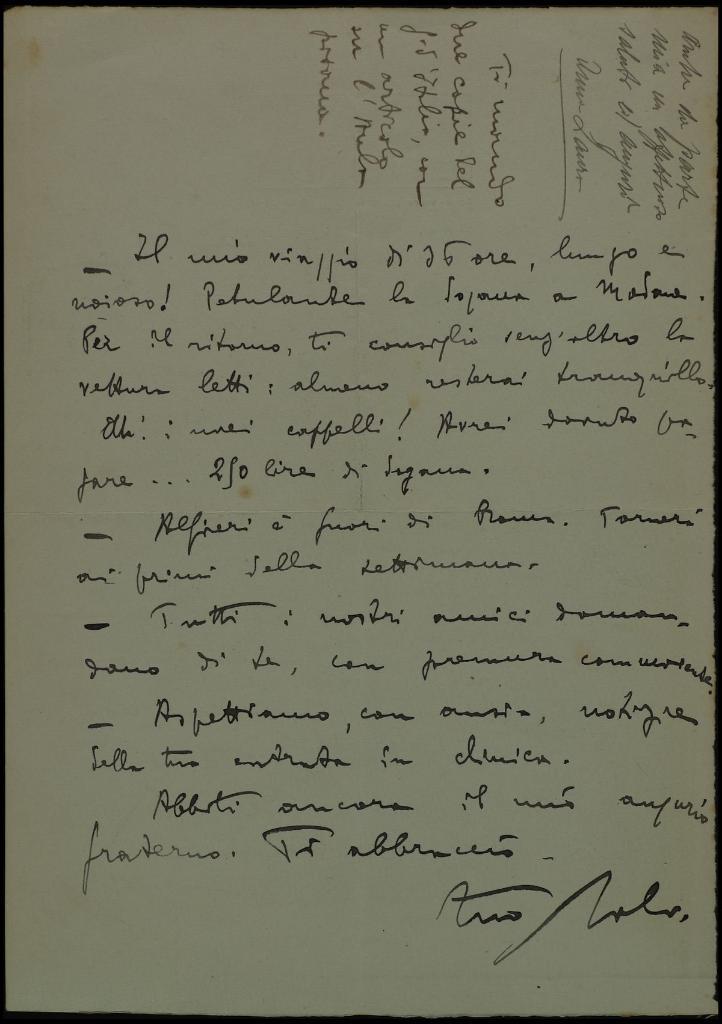 Ti mando
due copie del
G. d'Italia, con
un articolo
su l'
anche da parte
mia un affettuoso
saluto ed auguri
— Il mio viaggio di 36 ore, lungo e
noioso! Petulante la dogana a Modane.
Per il ritorno, ti consiglio senz'altro la
vettura letti: almeno resterai tranquillo.
Eh! i miei cappelli! Avrei dovuto pa-
gare ... 250 lire di dogana.
— Alfieri è fuori di Roma. Tornerà
ai primi della settimana.
— Tutti i nostri amici doman-
dano di te, con premura commovente.
— Aspettiamo, con ansia, notizie
della tua entrata in clinica.
Abbiti ancora il mio augurio
fraterno. Ti abbraccio
tuo